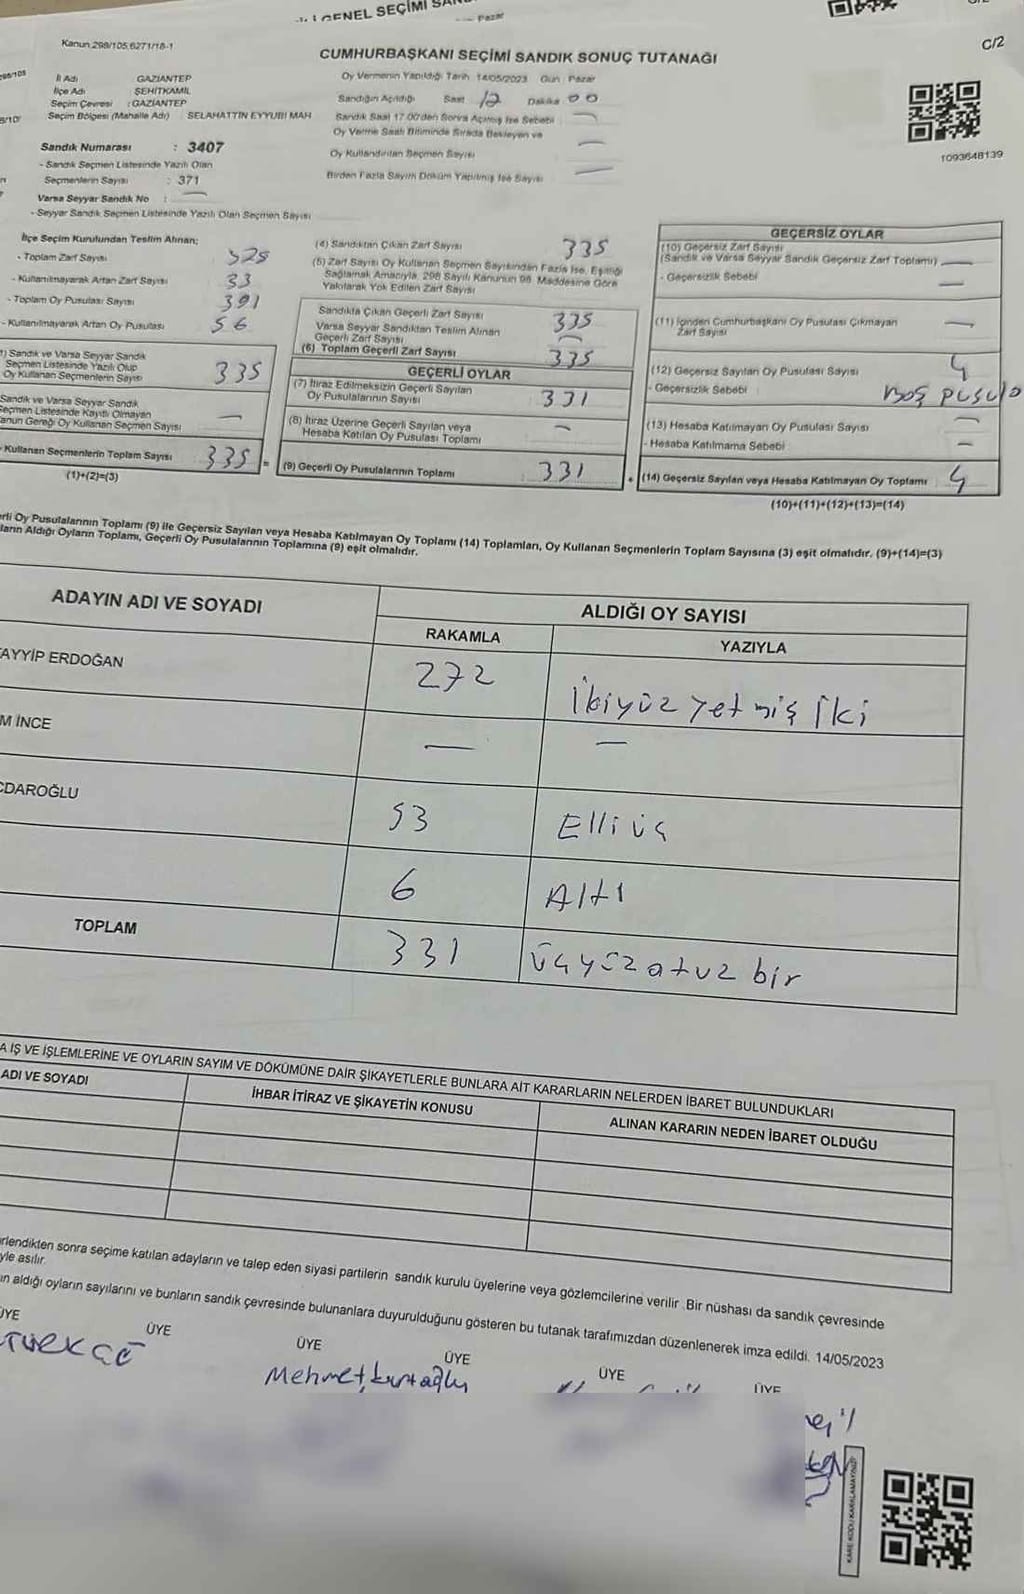 GENEL SEÇİMİ
Pazar
Kanun 298/105,6271/18-1
C/2
CUMHURBAŞKANI SEÇİMİ SANDIK SONUÇ TUTANAĞI
İl Adı GAZİANTEP
İlçe Adı ŞEHİTKAMİL
Seçim Çevresi : GAZİANTEP
Seçim Bölgesi (Mahalle Adı) SELAHATTİN EYYUBİ MAH
Oy Vermenin Yapıldığı Tarih 14/05/2023 Gün Pazar
Sandığın Açıldığı Saat 12 Dakika 00
Sandık Saat 17.00'den Sonra Açılmış İse Sebebi —
Oy Verme Saati Bitiminde Sırada Bekleyen ve
Oy Kullandırılan Seçmen Sayısı —
Birden Fazla Sayım Döküm Yapılmış İse Sayısı —
1093648139
Sandık Numarası : 3407
- Sandık Seçmen Listesinde Yazılı Olan
Seçmenlerin Sayısı : 371
Varsa Seyyar Sandık No : —
- Seyyar Sandık Seçmen Listesinde Yazılı Olan Seçmen Sayısı
İlçe Seçim Kurulundan Teslim Alınan;
- Toplam Zarf Sayısı
- Kullanılmayarak Artan Zarf Sayısı 33
- Toplam Oy Pusulası Sayısı 391
- Kullanılmayarak Artan Oy Pusulası 56
1) Sandık ve Varsa Seyyar Sandık
Seçmen Listesinde Yazılı Olup
Oy Kullanan Seçmenlerin Sayısı 335
Sandık ve Varsa Seyyar Sandık
Seçmen Listesinde Kayıtlı Olmayan
Kanun Gereği Oy Kullanan Seçmen Sayısı —
Kullanan Seçmenlerin Toplam Sayısı 335 =
(1)+(2)=(3)
(4) Sandıktan Çıkan Zarf Sayısı 335
(5) Zarf Sayısı Oy Kullanan Seçmen Sayısından Fazla İse, Eşitliği
Sağlamak Amacıyla, 298 Sayılı Kanunun 98. Maddesine Göre
Yakılarak Yok Edilen Zarf Sayısı
Sandıkta Çıkan Geçerli Zarf Sayısı 335
Varsa Seyyar Sandıktan Teslim Alınan
Geçerli Zarf Sayısı —
(6) Toplam Geçerli Zarf Sayısı 335
GEÇERLİ OYLAR
(7) İtiraz Edilmeksizin Geçerli Sayılan
Oy Pusulalarının Sayısı 331
(8) İtiraz Üzerine Geçerli Sayılan veya
Hesaba Katılan Oy Pusulası Toplamı —
(9) Geçerli Oy Pusulalarının Toplamı 331 +
GEÇERSİZ OYLAR
(10) Geçersiz Zarf Sayısı
(Sandık ve Varsa Seyyar Sandık Geçersiz Zarf Toplamı) —
- Geçersizlik Sebebi —
(11) İçinden Cumhurbaşkanı Oy Pusulası Çıkmayan
Zarf Sayısı —
(12) Geçersiz Sayılan Oy Pusulası Sayısı 4
- Geçersizlik Sebebi Boş pusula
(13) Hesaba Katılmayan Oy Pusulası Sayısı —
- Hesaba Katılmama Sebebi —
(14) Geçersiz Sayılan veya Hesaba Katılmayan Oy Toplamı 4
(10)+(11)+(12)+(13)=(14)
erli Oy Pusulalarının Toplamı (9) ile Geçersiz Sayılan veya Hesaba Katılmayan Oy Toplamı (14) Toplamları, Oy Kullanan Seçmenlerin Toplam Sayısına (3) eşit olmalıdır. (9)+(14)=(3)
ların Aldığı Oyların Toplamı, Geçerli Oy Pusulalarının Toplamına (9) eşit olmalıdır.
ADAYIN ADI VE SOYADI ALDIĞI OY SAYISI
RAKAMLA YAZIYLA
AYYİP ERDOĞAN 272 İkiyüz yetmiş iki
M İNCE — —
ÇDAROĞLU 53 Elli üç
6 Altı
TOPLAM 331 üçyüz otuz bir
A İŞ VE İŞLEMLERİNE VE OYLARIN SAYIM VE DÖKÜMÜNE DAİR ŞİKAYETLERLE BUNLARA AİT KARARLARIN NELERDEN İBARET BULUNDUKLARI
ADI VE SOYADI İHBAR İTİRAZ VE ŞİKAYETİN KONUSU ALINAN KARARIN NEDEN İBARET OLDUĞU
rlendikten sonra seçime katılan adayların ve talep eden siyasi partilerin sandık kurulu üyelerine veya gözlemcilerine verilir. Bir nüshası da sandık çevresinde
yle asılır.
ın aldığı oyların sayılarını ve bunların sandık çevresinde bulunanlara duyurulduğunu gösteren bu tutanak tarafımızdan düzenlenerek imza edildi. 14/05/2023
ÜYE ÜYE ÜYE ÜYE ÜYE ÜYE
Mehmet kurtoğlu
KARE KODU KARALAMAYINIZ